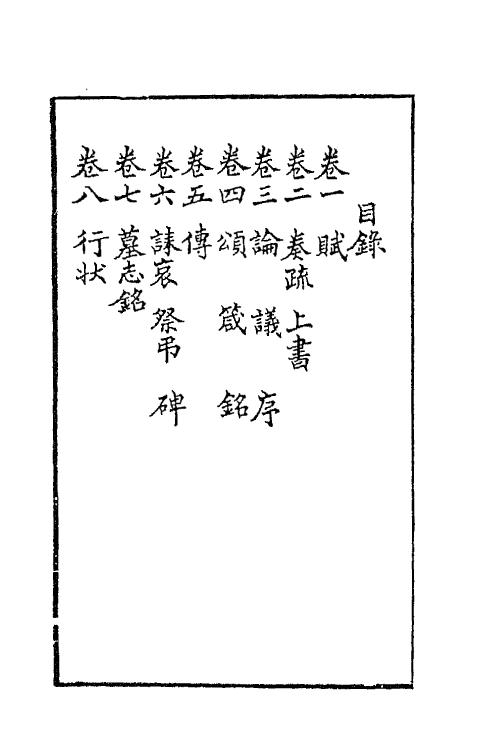 目錄
卷一 賦
卷二 奏疏 上書
卷三 論 議 序
卷四 頌 箴 銘
卷五 傳
卷六 誄哀 祭弔 碑
卷七 墓志銘
卷八 行状